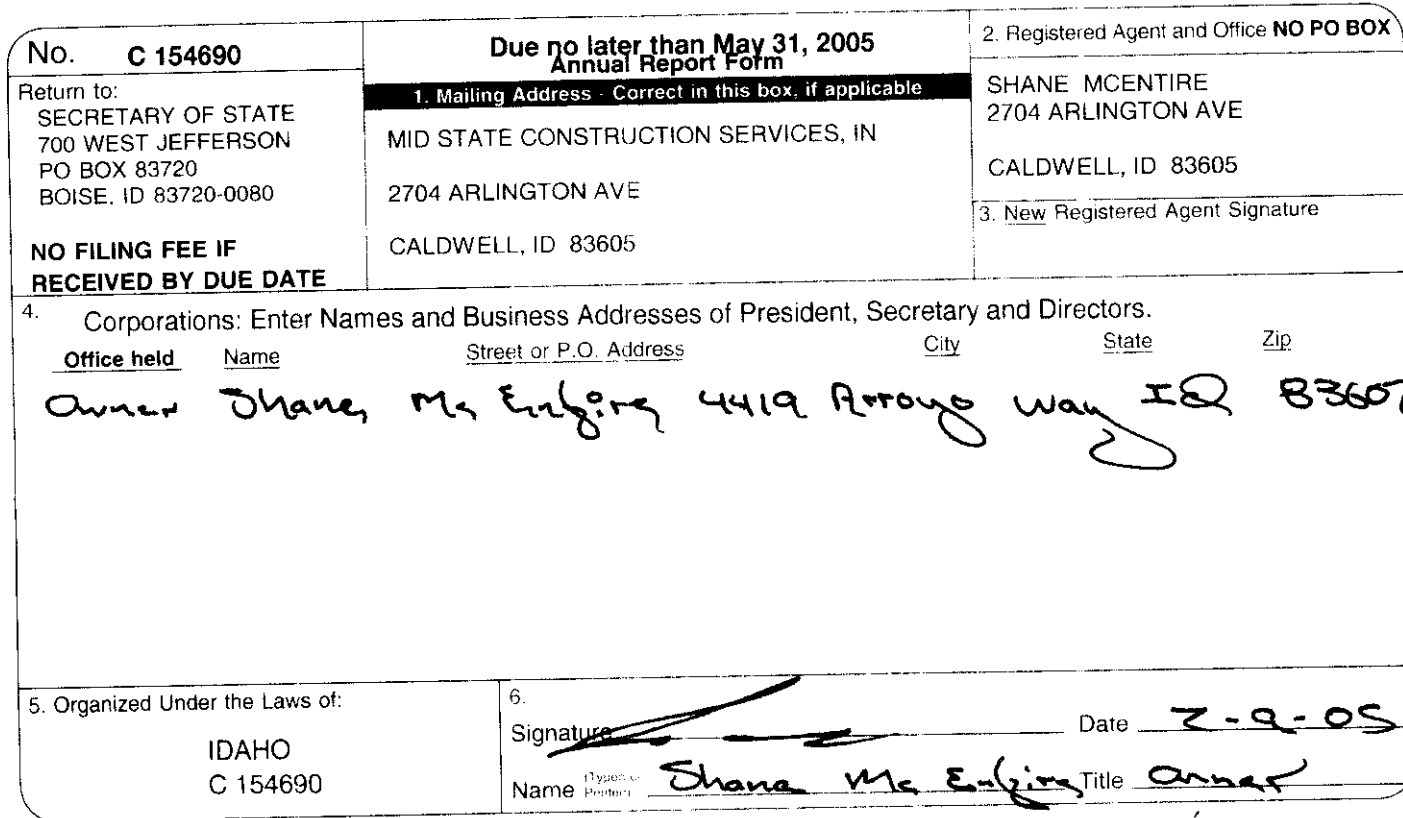 No. C 154690
Return to:
SECRETARY OF STATE
700 WEST JEFFERSON
PO BOX 83720
BOISE, ID 83720-0080
NO FILING FEE IF
RECEIVED BY DUE DATE
Due no later than May 31, 2005
Annual Report Form
1. Mailing Address - Correct in this box, if applicable
MID STATE CONSTRUCTION SERVICES, IN
2704 ARLINGTON AVE
CALDWELL, ID 83605
2. Registered Agent and Office NO PO BOX
SHANE MCENTIRE
2704 ARLINGTON AVE
CALDWELL, ID 83605
3. New Registered Agent Signature
4. Corporations: Enter Names and Business Addresses of President, Secretary and Directors.
Office held Name Street or P.O. Address City State Zip
Owner Shane Mc Entire 4419 Arroyo Way ID
5. Organized Under the Laws of:
IDAHO
C 154690
6.
Signature Date 2-9-05
Name (Typed or Printed) Shane Mc Entire Title Owner